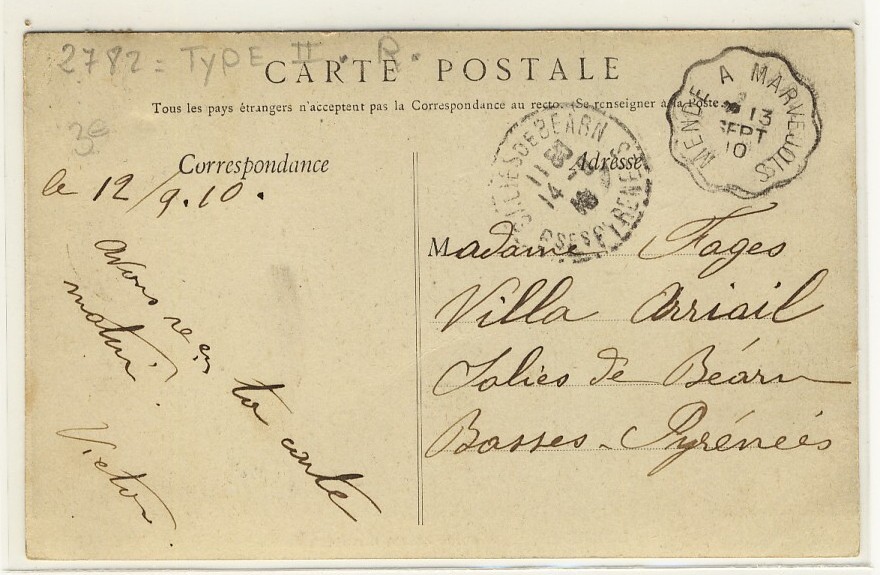 2782 = TYPE II. R.
CARTE POSTALE
Tous les pays étrangers n'acceptent pas la Correspondance au recto. (Se renseigner à la Poste.
3e
Correspondance
Adresse
MENDE A MARVEJOLS
13
SEPT
10
SALIES DE BEARN
11
14
BSES PYRENEES
le 12/9.10.
avons reçu ta carte
matin.
Victor
Madame Fages
Villa Arriail
Salies de Béarn
Basses-Pyrénées